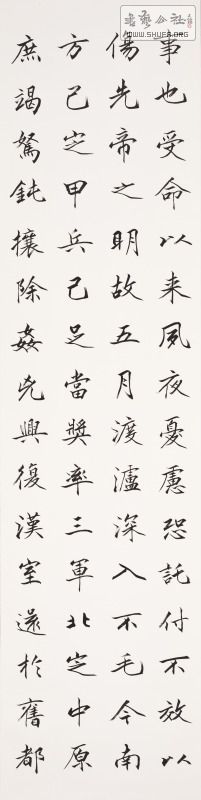 書藝公社
WWW.SHUFA.ORG
事也受命以来夙夜憂慮恐託付不放以
傷先帝之明故五月渡瀘深入不毛今南
方已定甲兵已足當獎率三軍北定中原
庶竭駑鈍攘除姦兇興復漢室還於舊都